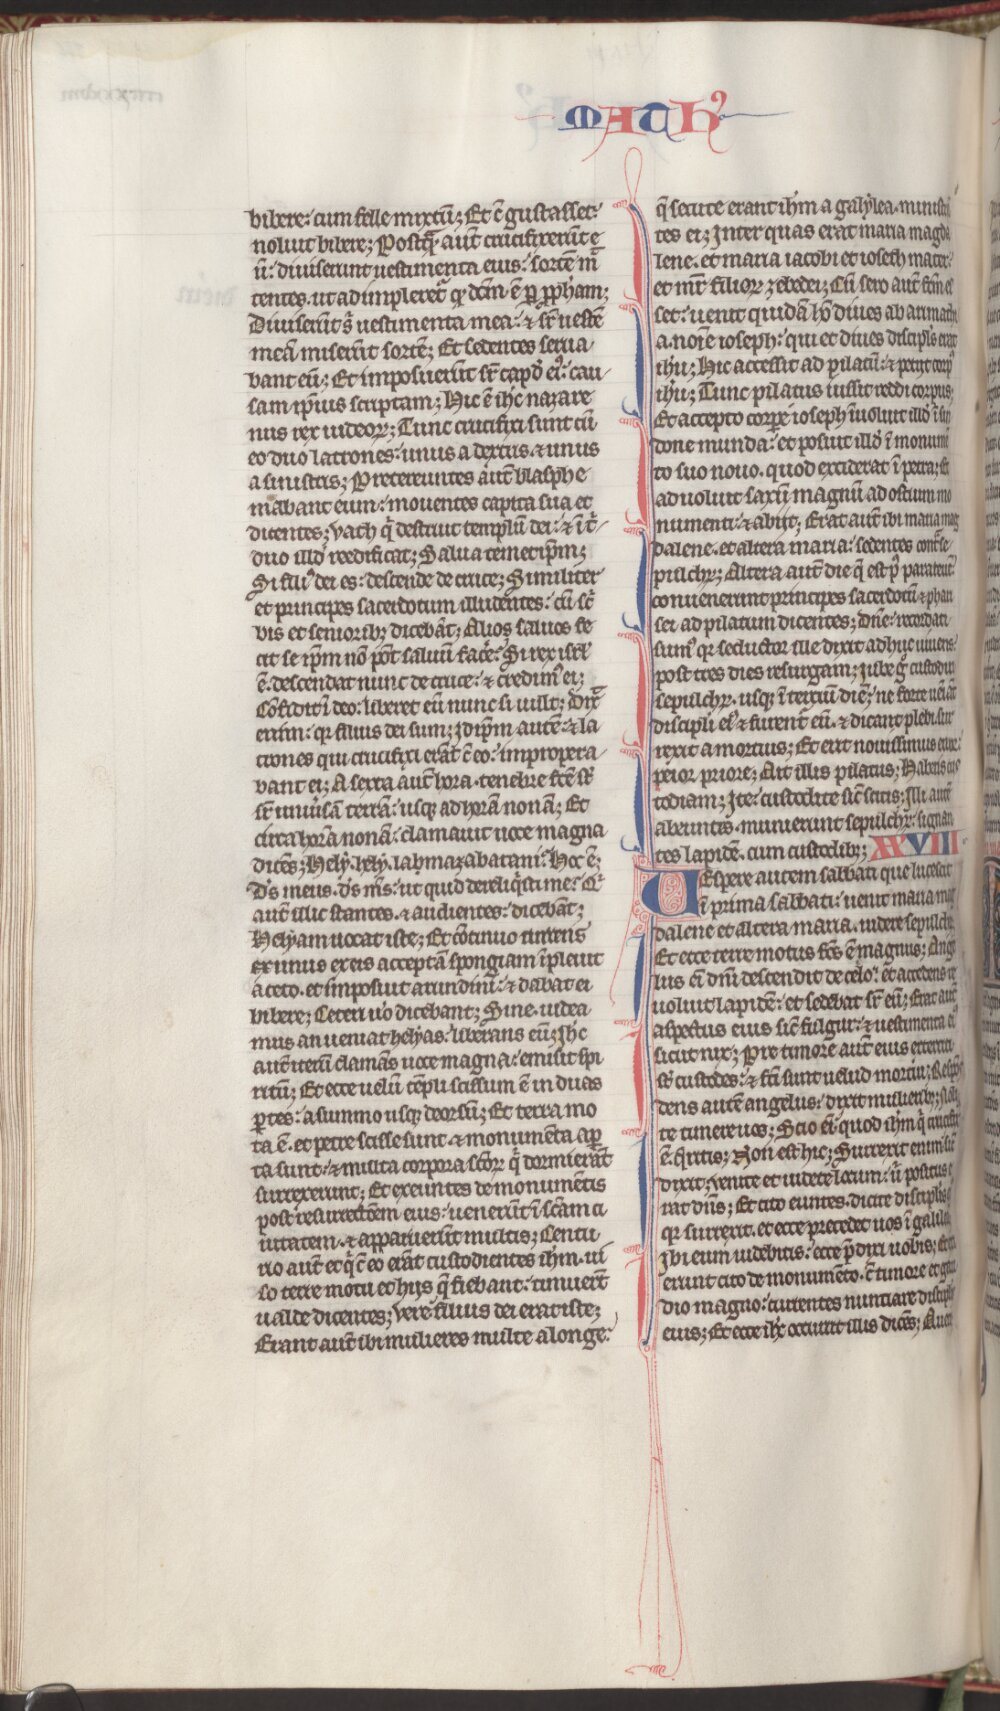 MATH'
bibere: cum felle mixtū; Et c̄ gustasset:
noluit bibere; Postq̄ aūt crucifixerūt e
ū: diuiserunt uestimenta eius: sortē mi
tentes. ut adimpleret' qd' dcm̄ ē p ꝓph̄am;
Diuiserūt s' uestimenta mea: ⁊ sr̄ uestē
meā miserūt sortē; Et sedentes serua
bant eū; Et imposuerūt sr̄ capd' ei': cau
sam ip̄ius scriptam; Hic ē ih̄c nazare
nus rex iudeoꝝ; Tunc crucifixi sunt cū
eo duo latrones: unus a dextris. ⁊ unus
a sinistris; Pretereuntes aūt blasphe
mabant eum: mouentes capita sua et
dicentes; Vach q̄ destruit templū dei: ⁊ ī t'
duo illd' reedificat; Salua temetip̄m;
Si fili' dei es: descende de cruce; Similiter
et principes sacerdotum illudentes: cū sc'
bis et senioribꝫ dicebāt; Alios saluos fe
cit se ip̄m nō pōt saluū face'; Si rex isr̄l
ē: descendat nunc de cruce: ⁊ credim' ei;
Cōfidit ī deo: liberet eū nunc si uult; Dix'
enim: qr filius dei sum; Idip̄m autē: ⁊ la
trones qui crucifixi erāt c̄ eo: impropera
bant ei; A sexta aūt hora. tenebre fcē st̄
sr̄ uniūsā terrā: usqꝫ ad horā nonā; Et
circa horā nonā: clamauit uoce magna
dicēs; Hely. hely. labmazabatani: Hoc ē;
D's meus. d's m's: ut quid dereliq̄sti me: Q'
aūt illic stantes. ⁊ audientes: dicebāt;
Helyam uocat iste; Et cōtinuo currens
ex unus ex eis acceptā spongiam īpleuit
aceto. et imposuit arundini: ⁊ dabat ei
bibere; Ceteri uo dicebant; Sine. uidea
mus an ueniat helyas: liberans eū; Ihc
aūt iterū clamās uoce magna: emisit spi
ritū; Et ecce uelū tēpli scissum ē in duas
ꝑtes: a summo usqꝫ deorsū; Et terra mo
ta ē. et petre scisse sunt. ⁊ monumēta aꝑ
ta sunt: ⁊ multa corpora scōꝝ q̄ dormierāt
surrexerunt; Et exeuntes de monumētis
post resurrectōem eius: uenerūt ī scām ci
uitatem. ⁊ apparuerūt multis; Centu
rio aūt et q̄ c̄ eo erāt custodientes ihm. ui
so terre motu et hijs q̄ fiebant: timuerūt
ualde dicentes; Vere filius dei erat iste;
Erant aūt ibi mulieres multe a longe:
q̄ secute erant ihm a galylea. ministrā
tes ei; Inter quas erat maria magda
lene. et maria iacobi et ioseph mater:
et mr̄ filioꝝ zebedei; Cū sero aūt fcm̄ es
set: uenit quidā hō diues ab arimath
a. noīe ioseph: qui et diues discipl's erat
ihu; Hic accessit ad pilatū: ⁊ petijt corp'
ihu; Tunc pilatus iussit reddi corpus;
Et accepto corpe ioseph īuoluit illd' ī sin
done munda: et posuit illd' ī monumē
to suo nouo. quod exciderat ī petra; et
aduoluit saxū magnū ad ostium mo
numenti: ⁊ abijt; Erat aūt ibi maria mag
dalene. et altera maria: sedentes cont' se
pulchꝝ; Altera aūt die q̄ est p' parasceuē
conuenerunt principes sacerdotū ⁊ phari
sei ad pilatum dicentes; Dn̄e: recordati
sum' qr seductor ille dixit adhuc uiuens:
post tres dies resurgam; iube g' custodiri
sepulchꝝ. usqꝫ ī tercium diē; ne forte ueniāt
discipli ei' ⁊ furent' eū. ⁊ dicant plebi. sur
rexit a mortuis; Et erit nouissimus error:
peior priore; Ait illis pilatus; Habetis cus
todiam; Ite: custodite sic̄ scitis; Illi autē
abeuntes. munierunt sepulchꝝ: signan
tes lapidē. cum custodibꝫ; XXVIII
Vespere autem sabbati que lucescit
ī prima sabbati: uenit maria mag
dalene et altera maria. uidere sepulchꝝ;
Et ecce terre motus fcs ē magnus; Ange
lus ei dn̄i descendit de celo: et accedens re
uoluit lapidē: et sedebat sr̄ eū; Erat aūt
aspectus eius sic̄ fulgur: ⁊ uestimenta ei'
sicut nix; Pre timore aūt eius exterriti
st̄ custodes: ⁊ fcī sunt uelud mortui; Respō
dens autē angelus: dixit mulieribꝫ; Noli
te timere uos; Scio ei quod ihm q̄ crucifix'
ē q̄ritis; Non est hic; Surrexit enim sic̄
dixit; Venite et uidete locum: u' positus e
rat dn̄s; Et cito euntes. dicite discipl'is ei'
qr surrexit. et ecce precedet uos ī galilea;
Ibi eum uidebitis: ecce p'dixi uobis; Et exi
erunt cito de monumēto. c̄ timore et gau
dio magno: currentes nuntiare discipl'
eius; Et ecce ihc occurrit illis dicēs; Auete